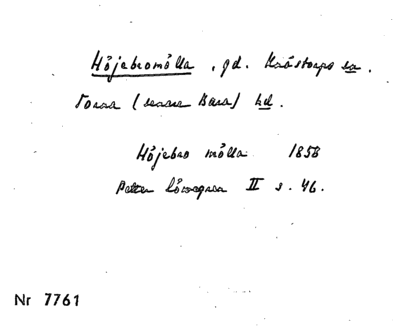 Höjebromölla, gd. Knästorps sn.
Torna (senare Bara) hd.
Höjebro mölla 1858
Petter II s. 46.
Nr 7761